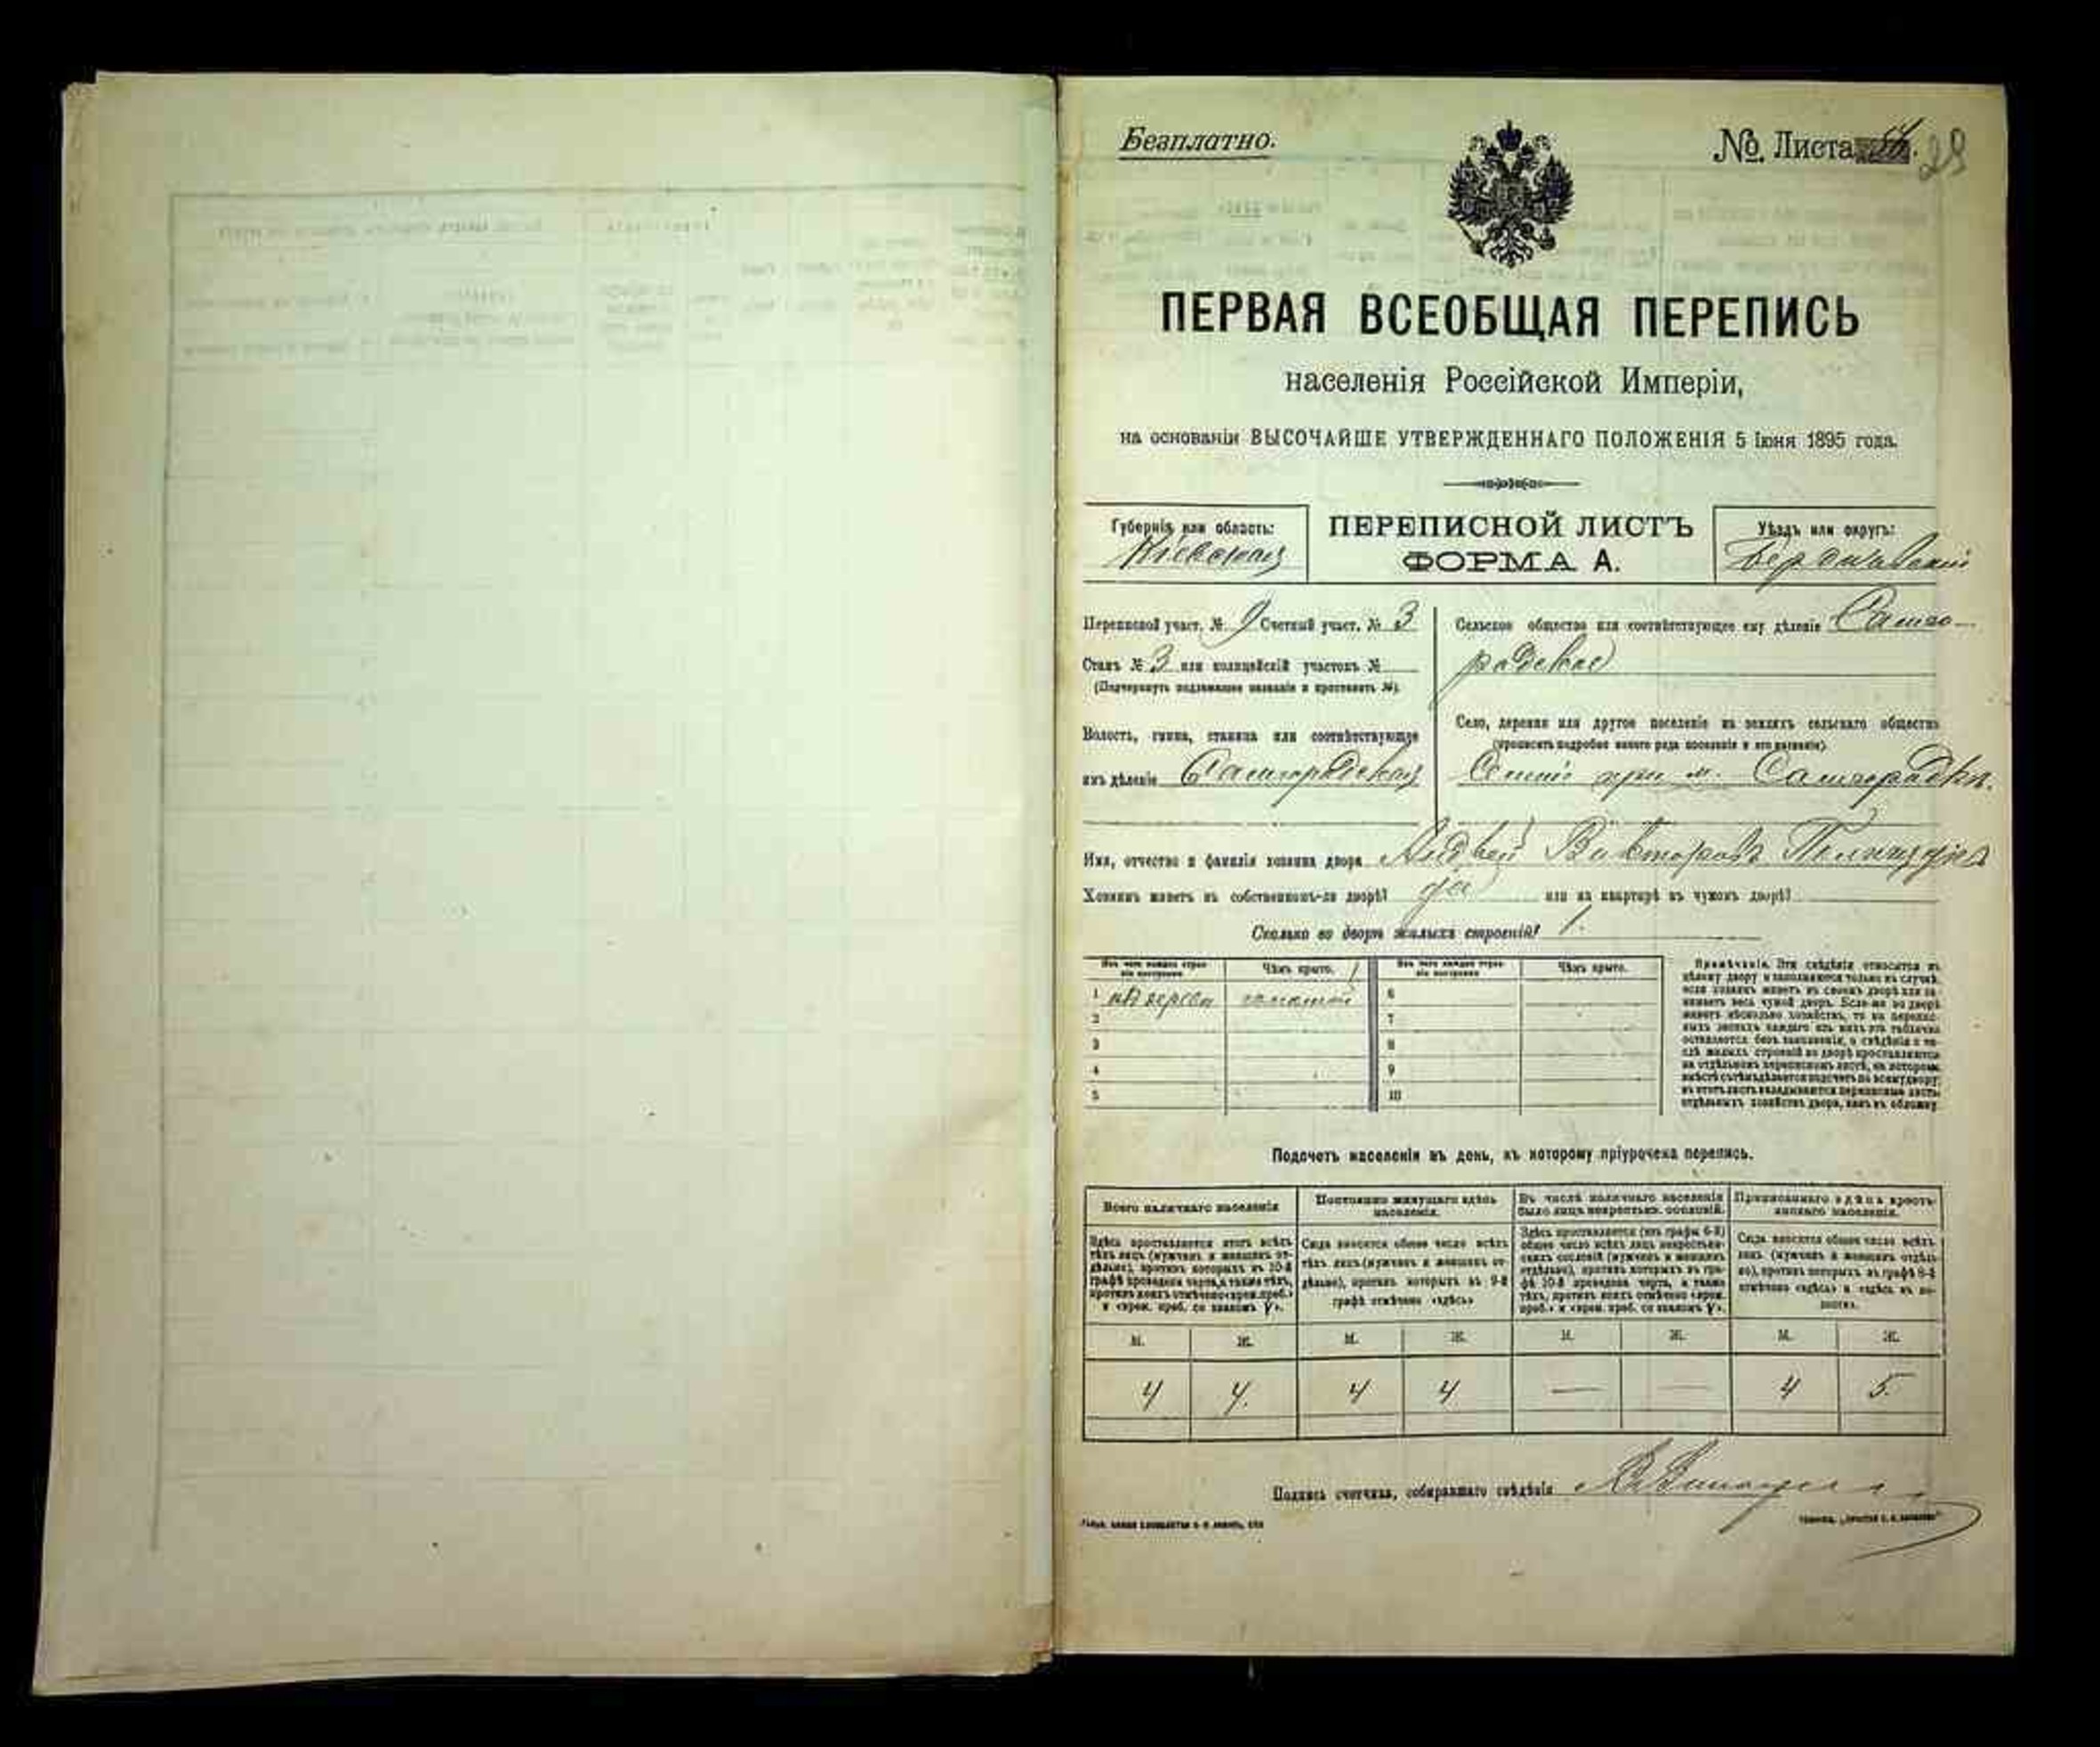 Безплатно.
№ Листа
29
ПЕРВАЯ ВСЕОБЩАЯ ПЕРЕПИСЬ
населенія Россійской Имперіи,
на основаніи ВЫСОЧАЙШЕ УТВЕРЖДЕННАГО ПОЛОЖЕНІЯ 5 Іюня 1895 года.
Губернія или область:
Кіевская
ПЕРЕПИСНОЙ ЛИСТЪ
ФОРМА А.
Уѣздъ или округъ:
Бердичевскій
Переписной участ. № 9 Счетный участ. № 3
Станъ № 3 или полицейскій участокъ №
(Подчеркнуть подлежащее названіе и проставить №).
Волость, гмина, станица или соотвѣтствующее
имъ дѣленіе Самгородская
Сельское общество или соотвѣтствующее ему дѣленіе Самго-
родское
Село, деревня или другое поселеніе на земляхъ сельскаго общества
(прописать подробно какого рода поселеніе и его названіе).
при м. Самгородкѣ.
Имя, отчество и фамилія хозяина двора Викторовъ
Хозяинъ живетъ въ собственномъ-ли дворѣ? да или на квартирѣ въ чужомъ дворѣ?
Сколько во дворѣ жилыхъ строеній? 1.
Изъ чего каждое строе-
ніе построено
Чѣмъ крыто.
Изъ чего каждое строе-
ніе построено
Чѣмъ крыто.
1 изъ дерева соломой 6
2 7
3 8
4 9
5 10
Примѣчаніе. Эти свѣдѣнія относятся къ
цѣлому двору и заполняются только въ случаѣ,
если хозяинъ живетъ въ своемъ дворѣ или за-
нимаетъ весь чужой дворъ. Если-же во дворѣ
живетъ нѣсколько хозяйствъ, то на перепис-
ныхъ листахъ каждаго изъ нихъ эта табличка
оставляется безъ заполненія, а свѣдѣнія о чи-
слѣ жилыхъ строеній во дворѣ проставляются
на отдѣльномъ переписномъ листѣ, на которомъ
вмѣстѣ съ тѣмъ дѣлается подсчетъ по всему двору;
въ этотъ листъ вкладываются переписные листы
отдѣльныхъ хозяйствъ двора, какъ въ обложку.
Подсчетъ населенія въ день, къ которому пріурочена перепись.
Всего наличнаго населенія
Здѣсь проставляется итогъ всѣхъ
тѣхъ лицъ (мужчинъ и женщинъ от-
дѣльно), противъ которыхъ въ 10-й
графѣ проведена черта, а также тѣхъ,
противъ коихъ отмѣчено «врем. преб.»
и «врем. преб. со знакомъ V».
Постоянно живущаго здѣсь
населенія.
Сюда вносится общее число всѣхъ
тѣхъ лицъ (мужчинъ и женщинъ от-
дѣльно), противъ которыхъ въ 9-й
графѣ отмѣчено «здѣсь»
Въ числѣ наличнаго населенія
было лицъ некрестьян. сословій.
Здѣсь проставляется (изъ графы 6-й)
общее число всѣхъ лицъ некрестьян-
скихъ сословій (мужчинъ и женщинъ
отдѣльно), противъ которыхъ въ гра-
фѣ 10-й проведена черта, а также
тѣхъ, противъ коихъ отмѣчено «врем.
преб.» и «врем. преб. со знакомъ V».
Приписаннаго здѣсь кресть-
янскаго населенія.
Сюда вносится общее число всѣхъ
лицъ (мужчинъ и женщинъ отдѣль-
но), противъ которыхъ въ графѣ 8-й
отмѣчено «здѣсь» и «здѣсь въ во-
лости».
М. Ж. М. Ж. М. Ж. М. Ж.
4 4. 4 4 — — 4 5.
Подпись счетчика, собиравшаго свѣдѣнія